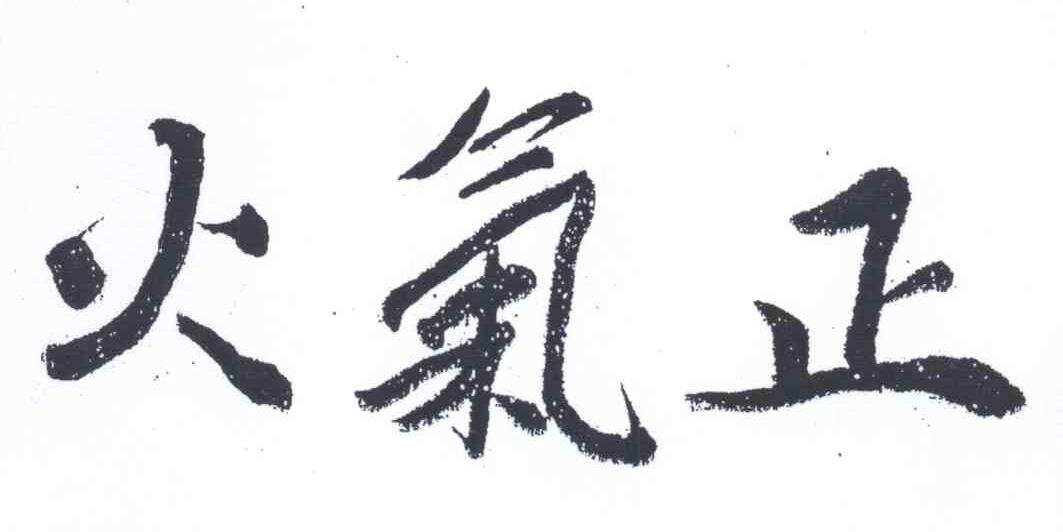 火氣正